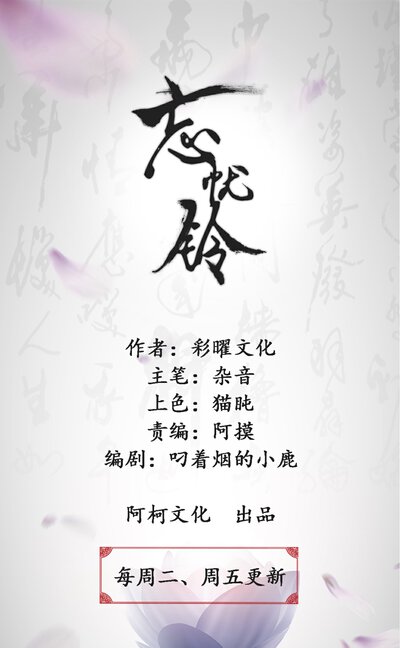 忘忧铃
作者：彩曜文化
主笔：杂音
上色：猫盹
责编：阿摸
编剧：叼着烟的小鹿
阿柯文化 出品
每周二、周五更新